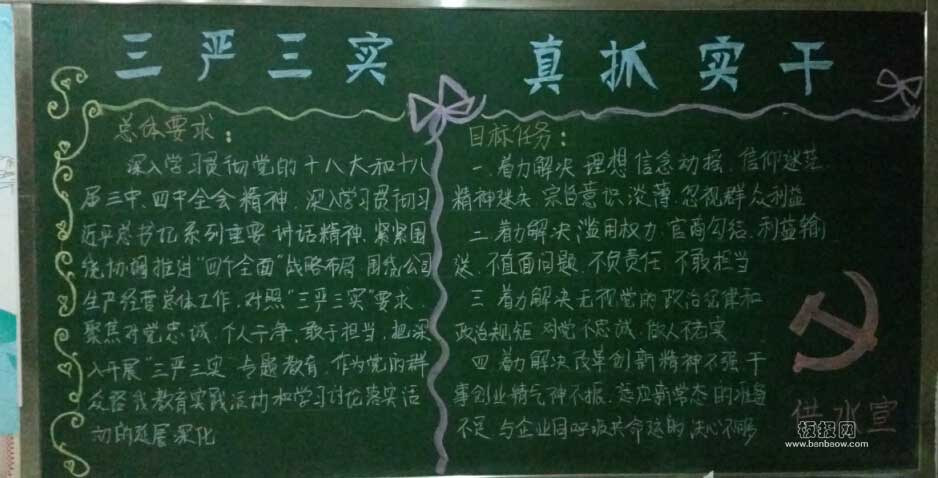 三严三实 真抓实干
总体要求：
深入学习贯彻党的十八大和十八
届三中、四中全会精神，深入学习贯彻习
近平总书记系列重要讲话精神，紧紧围
绕协调推进“四个全面”战略布局，围绕公司
生产经营总体工作，对照“三严三实”要求，
聚焦对党忠诚、个人干净、敢于担当，把深
入开展“三严三实”专题教育，作为党的群
众路线教育实践活动和学习讨论落实活
动的延展深化
目标任务：
一.着力解决理想信念动摇、信仰迷茫
精神迷失、宗旨意识淡薄、忽视群众利益
二.着力解决滥用权力、官商勾结、利益输
送、不直面问题、不负责任、不敢担当
三.着力解决无视党的政治纪律和
政治规矩、对党不忠诚、做人不老实
四.着力解决改革创新精神不强、干
事创业精气神不振、适应新常态的准备
不足、与企业同呼吸共命运的决心不够
供水宣
板报网
www.banbaow.com